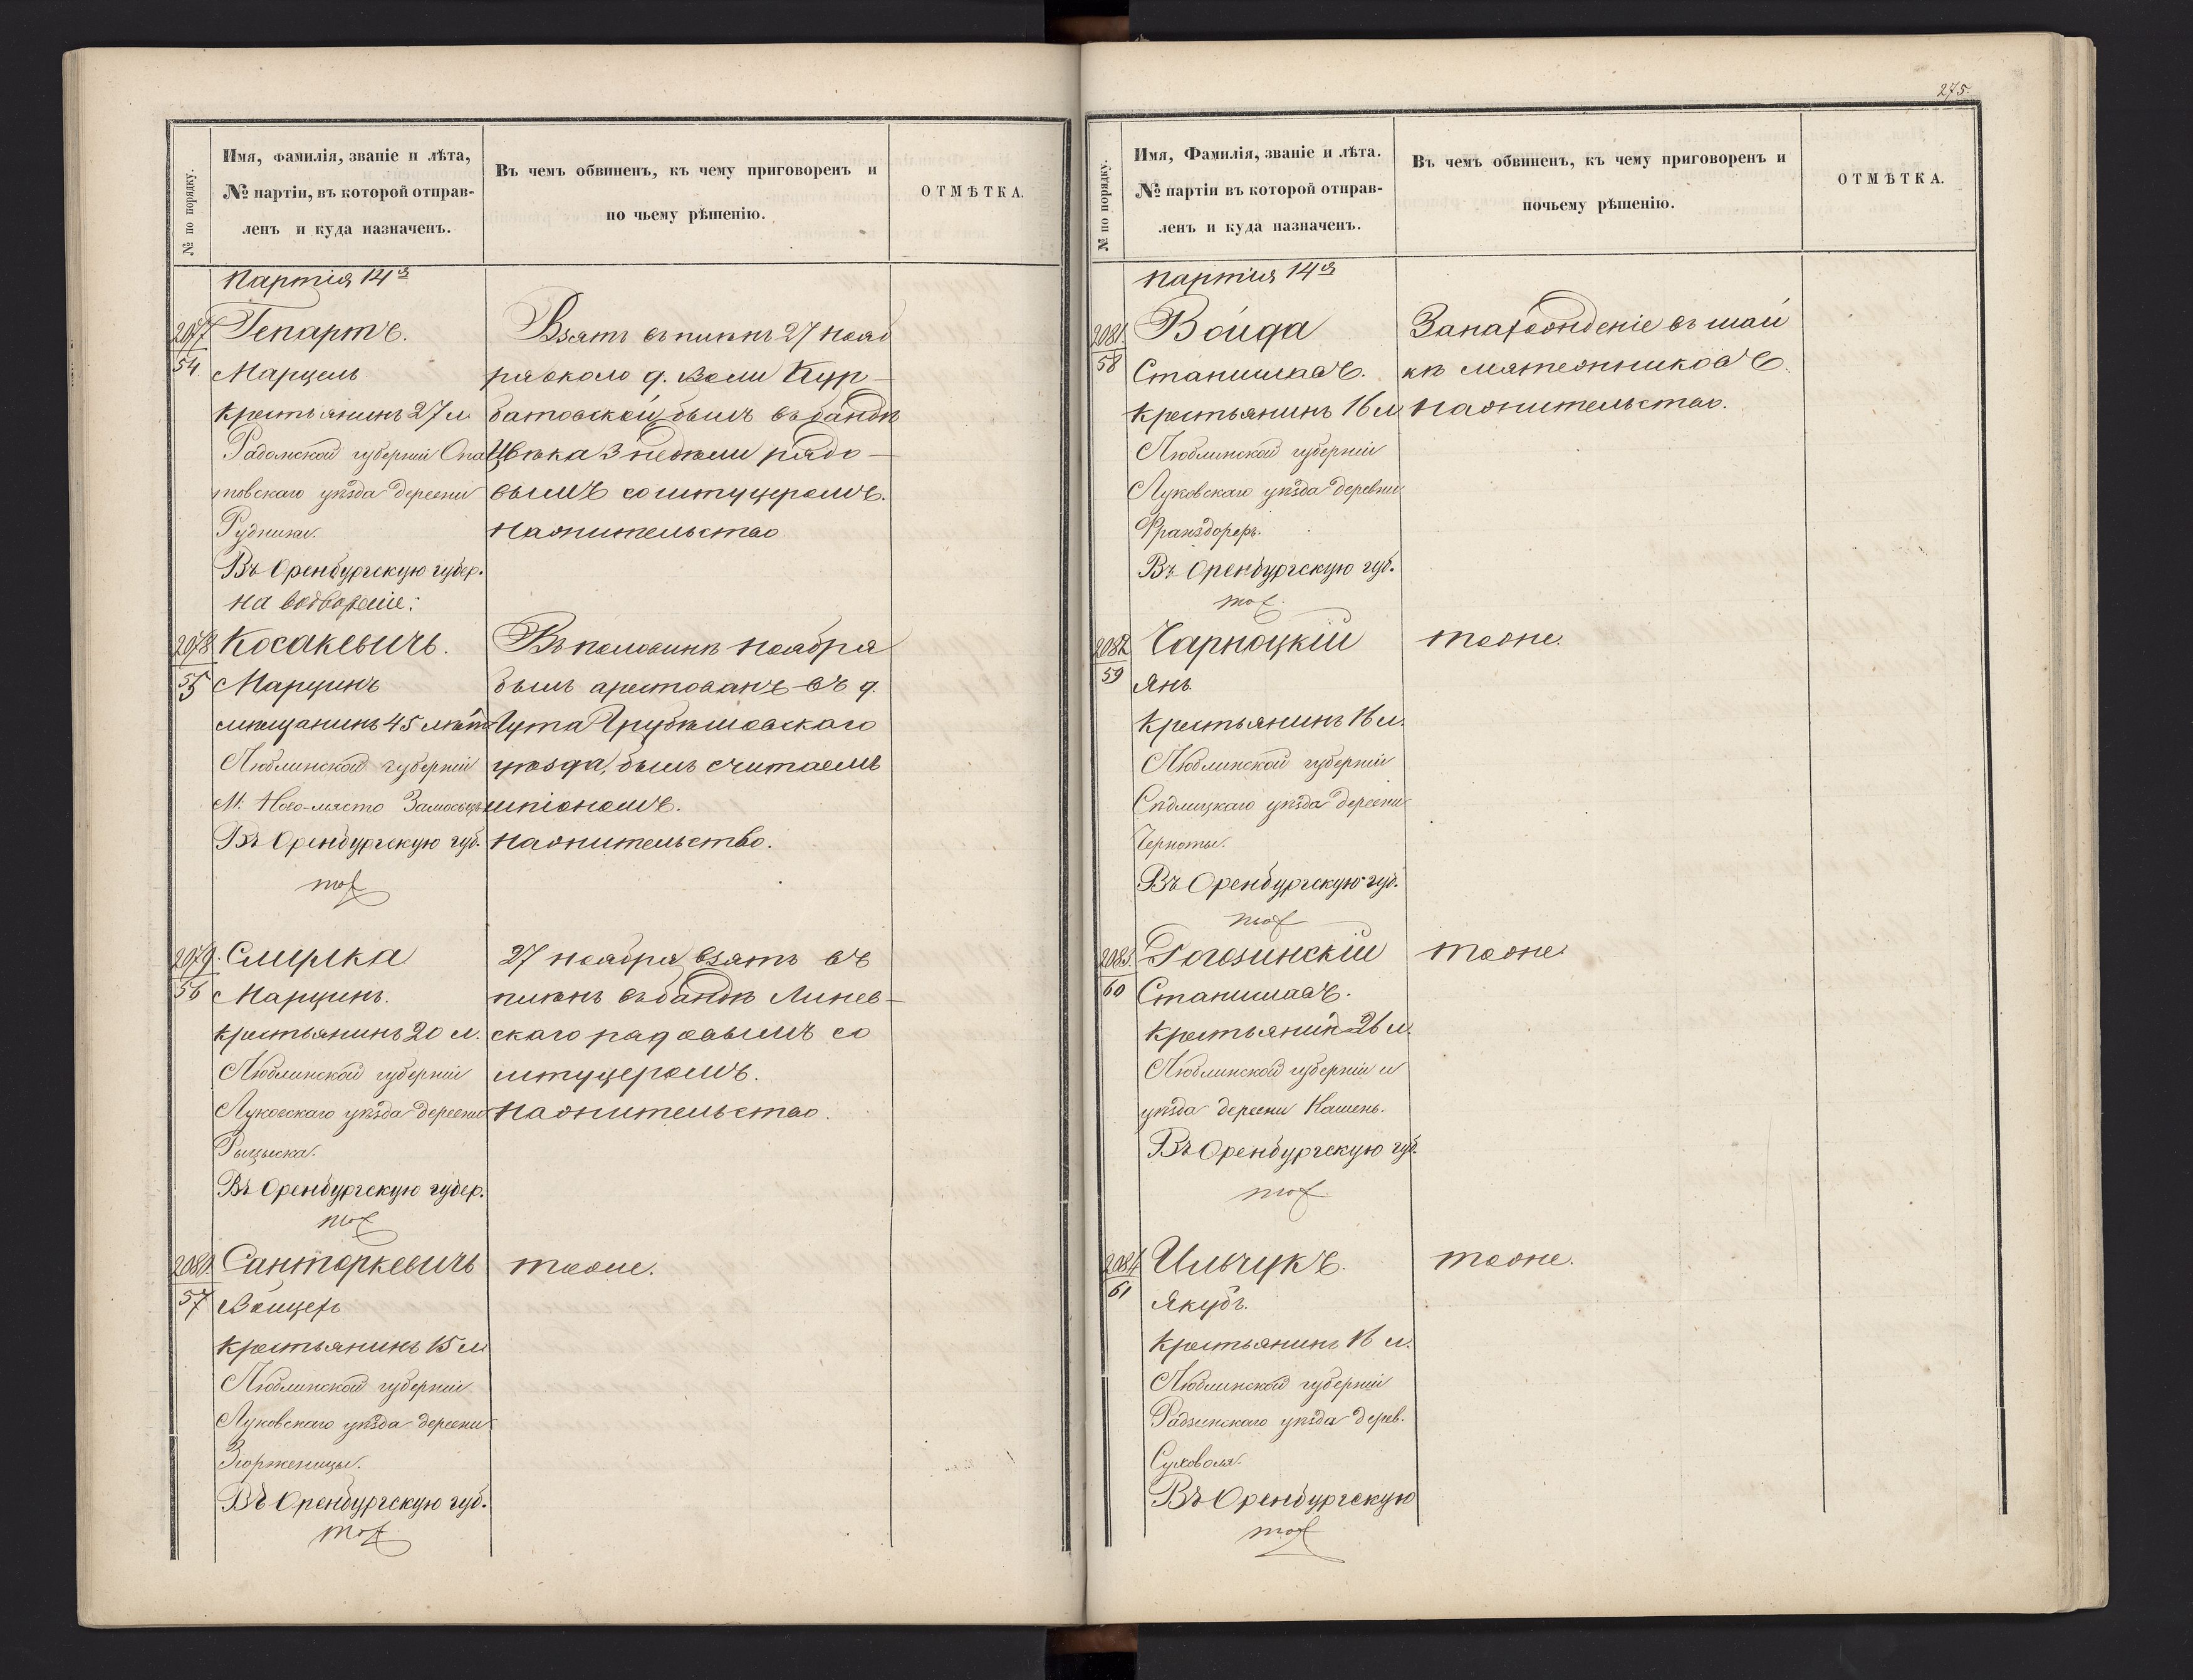 № по порядку.
Имя, фамилія, званіе и лѣта,
№ партіи, въ которой отправ-
ленъ и куда назначенъ.
Въ чемъ обвиненъ, къ чему приговоренъ и
по чьему рѣшенію.
ОТМѢТКА.
Партія 14я
2077
54
Гепартъ.
Марцель
крестьянинъ 27 л.
Радомской губерніи Опа
товскаго уѣзда деревни
Рудники.
Въ Оренбургскую губер.
на водвореніе:
Взятъ въ плѣнъ 27 нояб
ря около д. Воли Кур-
батовской, былъ въ бандѣ
Цвѣка 3 недѣли рядо-
вымъ со штуцеромъ.
На жительство
2078
55
Косакевичъ.
Марцинъ
мѣщанинъ 45 лѣтъ
Люблинской губерніи
М. Ново-място
Въ Оренбургскую губ.
тож
Въ половинѣ ноября
былъ арестованъ въ д.
Гута Грубешовскаго
уѣзда, былъ считаемъ
шпіономъ.
На жительство.
2079.
56
Смирка
Марцинъ.
крестьянинъ 20 л.
Люблинской губерніи
Луковскаго уѣзда деревни
Въ Оренбургскую губер.
тож
27 ноября взятъ въ
плѣнъ въ бандѣ Линев-
скаго рядовымъ со
штуцеромъ.
На жительство.
2080.
57
Санторкевичъ
Войцехъ
крестьянинъ 15 л
Люблинской губерніи
Луковскаго уѣзда деревни
Въ Оренбургскую губ.
тож
тоже.
275.
№ по порядку.
Имя, Фамилія, званіе и лѣта.
№ партіи въ которой отправ-
ленъ и куда назначенъ.
Въ чемъ обвиненъ, къ чему приговоренъ и
почьему рѣшенію.
ОТМѢТКА.
Партія 14я
2081.
58
Войда
Станиславъ.
крестьянинъ 16 л
Люблинской губерніи
Луковскаго уѣзда деревни
Франздорфъ.
Въ Оренбургскую губ.
тож.
За нахожденіе въ шай
кѣ мятежниковъ
На жительство.
2082
59
Чарноцкій
Янъ.
крестьянинъ 16 л.
Люблинской губерніи
Сѣдлицкаго уѣзда деревни
Черноты.
Въ Оренбургскую губ.
тож
тоже.
2083.
60
Рогозинскій
Станиславъ.
крестьянинъ 26 л.
Люблинской губерніи и
уѣзда деревни Камень.
Въ Оренбургскую губ.
тож
тоже.
2084
61
Ильчукъ.
Якубъ.
крестьянинъ 16 л.
Люблинской губерніи
Радзинскаго уѣзда дерев.
Суховоля.
Въ Оренбургскую
тож
тоже.